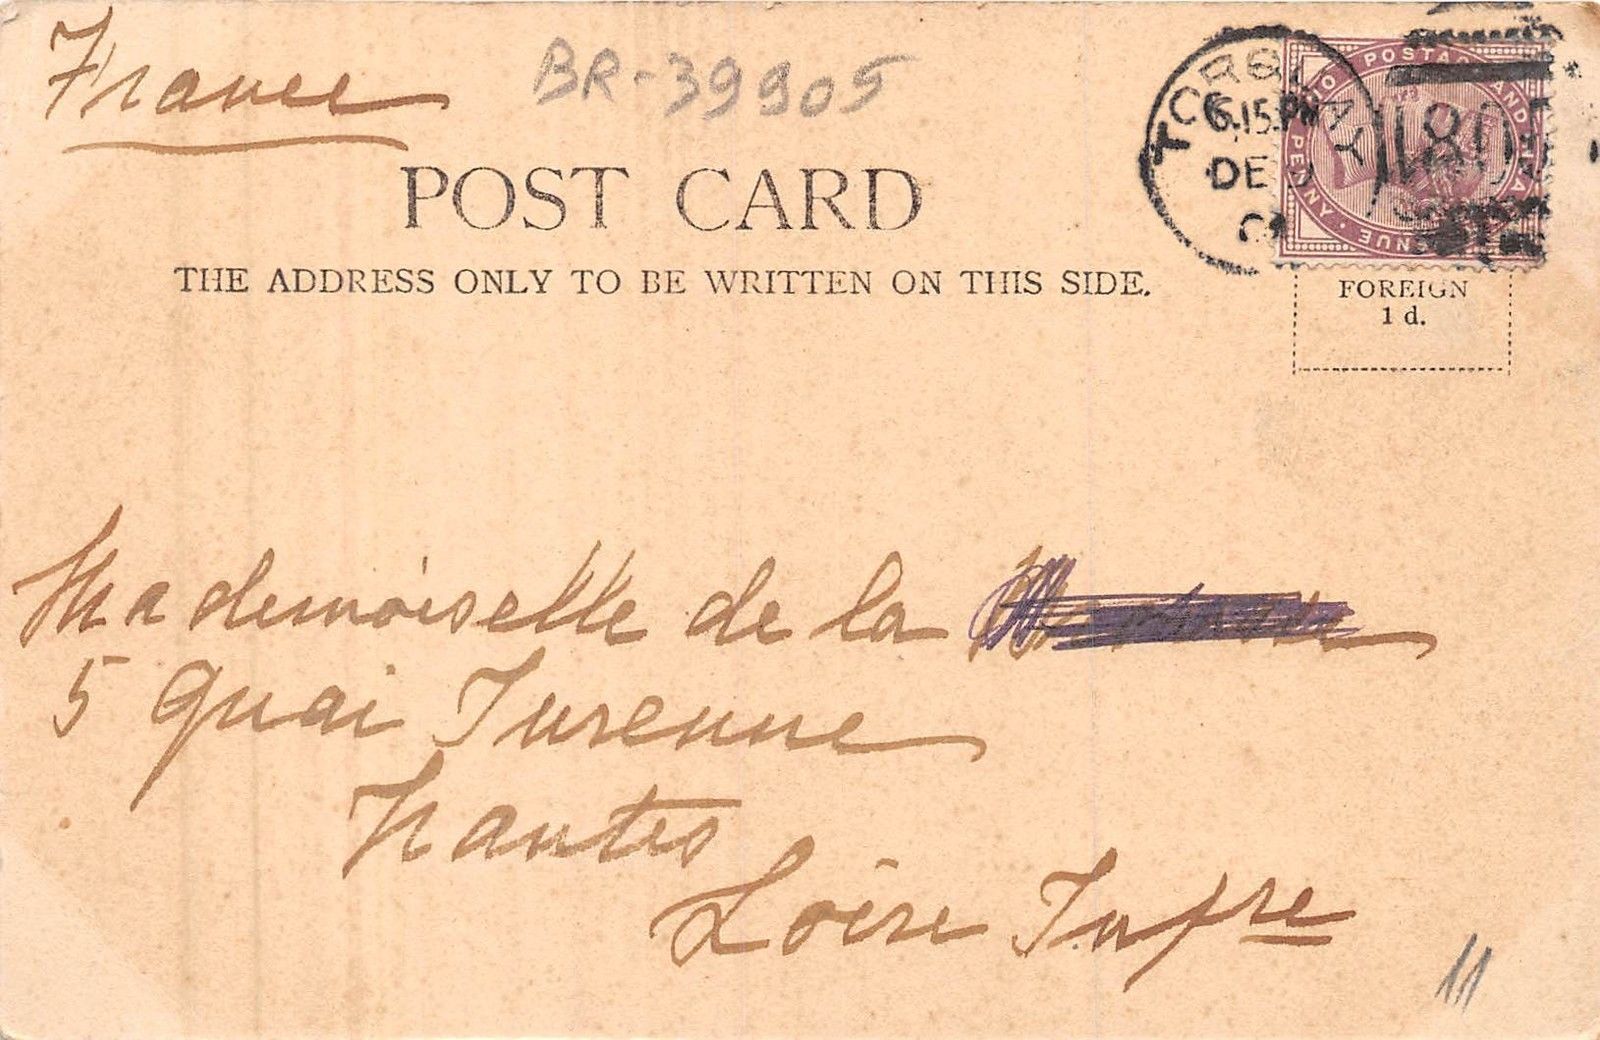 France
BR-39905
POST CARD
THE ADDRESS ONLY TO BE WRITTEN ON THIS SIDE.
TORQUAY
6.15.PM
DE
01
180
POSTAGE AND
PENNY
FOREIGN
1 d.
Mademoiselle de la
5 quai Turenne
Nantes
Loire Infre
11